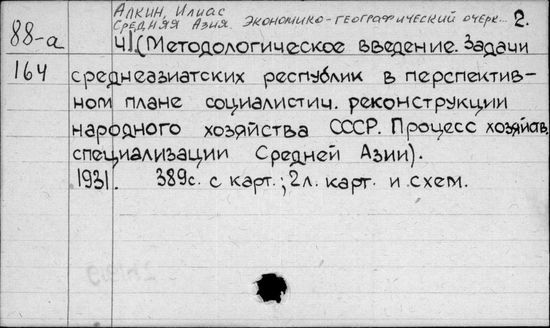 Алкин, Илиас
Средняя Азия. Экономико-географический очерк... 2.
88-а
164
ч1 (Методологическое введение. Задачи
среднеазиатских республик в перспектив-
ном плане социалистич. реконструкции
народного хозяйства СССР. Процесс хозяйств.
специализации Средней Азии).
1931. 389с. с карт.; 2л. карт. и схем.